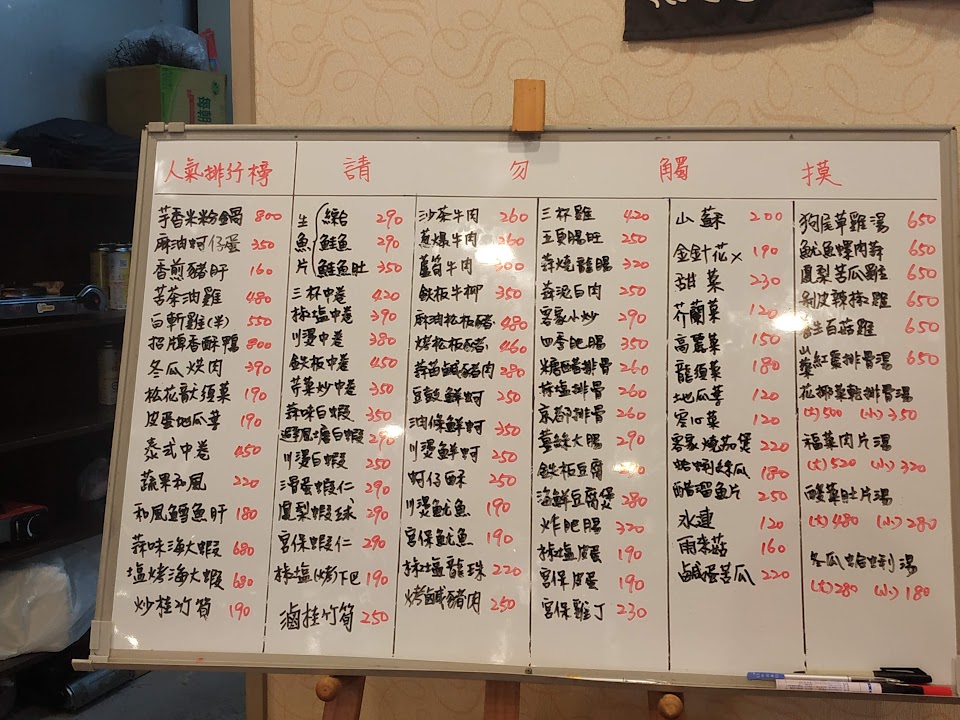 人氣排行榜
請勿觸摸
芋香米粉鍋 800
麻油蚵仔蛋 350
香煎豬肝 160
苦茶油雞 480
白斬雞(半) 550
招牌香酥鴨 800
冬瓜烘肉 390
松花獻須菜 190
皮蛋地瓜葉 190
泰式中卷 450
蔬果和風 220
和風鱈魚肝 180
蒜味海大蝦 680
塩烤海大蝦 680
炒桂竹筍 190
生魚片
綜合 290
鮭魚 290
鮭魚肚 350
三杯中卷 420
椒塩中卷 390
川燙中卷 380
鉄板中卷 450
芹菜炒中卷 350
蒜味白蝦 350
避風塘白蝦 290
川燙白蝦 250
滑蛋蝦仁 290
鳳梨蝦球 290
宮保蝦仁 290
椒塩(烤)下巴 190
滷桂竹筍 250
沙茶牛肉 260
蔥爆牛肉 260
蘆筍牛肉 300
鉄板牛柳 350
麻油松板豬 480
烤松板豬 460
蒜苗鹹豬肉 280
豆豉鮮蚵 250
油條鮮蚵 350
川燙鮮蚵 250
蚵仔酥 250
川燙魷魚 190
宮保魷魚 190
椒塩龍珠 220
烤鹹豬肉 250
三杯雞 420
五更腸旺 250
蒜燒龍腸 320
蒜泥白肉 250
客家小炒 290
四季肥腸 350
糖醋排骨 260
椒塩排骨 260
京都排骨 260
薑絲大腸 290
鉄板豆腐
海鮮豆腐煲 280
炸肥腸 320
椒塩皮蛋 190
宮保皮蛋 190
宮保雞丁 230
山蘇 200
金針花× 190
甜菜 230
芥蘭菜 120
高麗菜 150
龍須菜 180
地瓜葉 120
空心菜 120
客家燒茄煲 220
蛤蜊絲瓜 180
醋溜魚片 250
水蓮 120
雨來菇 160
鹹蛋苦瓜 220
狗尾草雞湯 650
魷魚螺肉蒜 650
鳳梨苦瓜雞 650
剝皮辣椒雞 650
養生百菇雞 650
山藥紅棗排骨湯 650
花椰菜乾排骨湯
(大)500 (小)350
福菜肉片湯
(大)520 (小)320
酸菜肚片湯
(大)480 (小)280
冬瓜蛤蜊湯
(大)280 (小)180